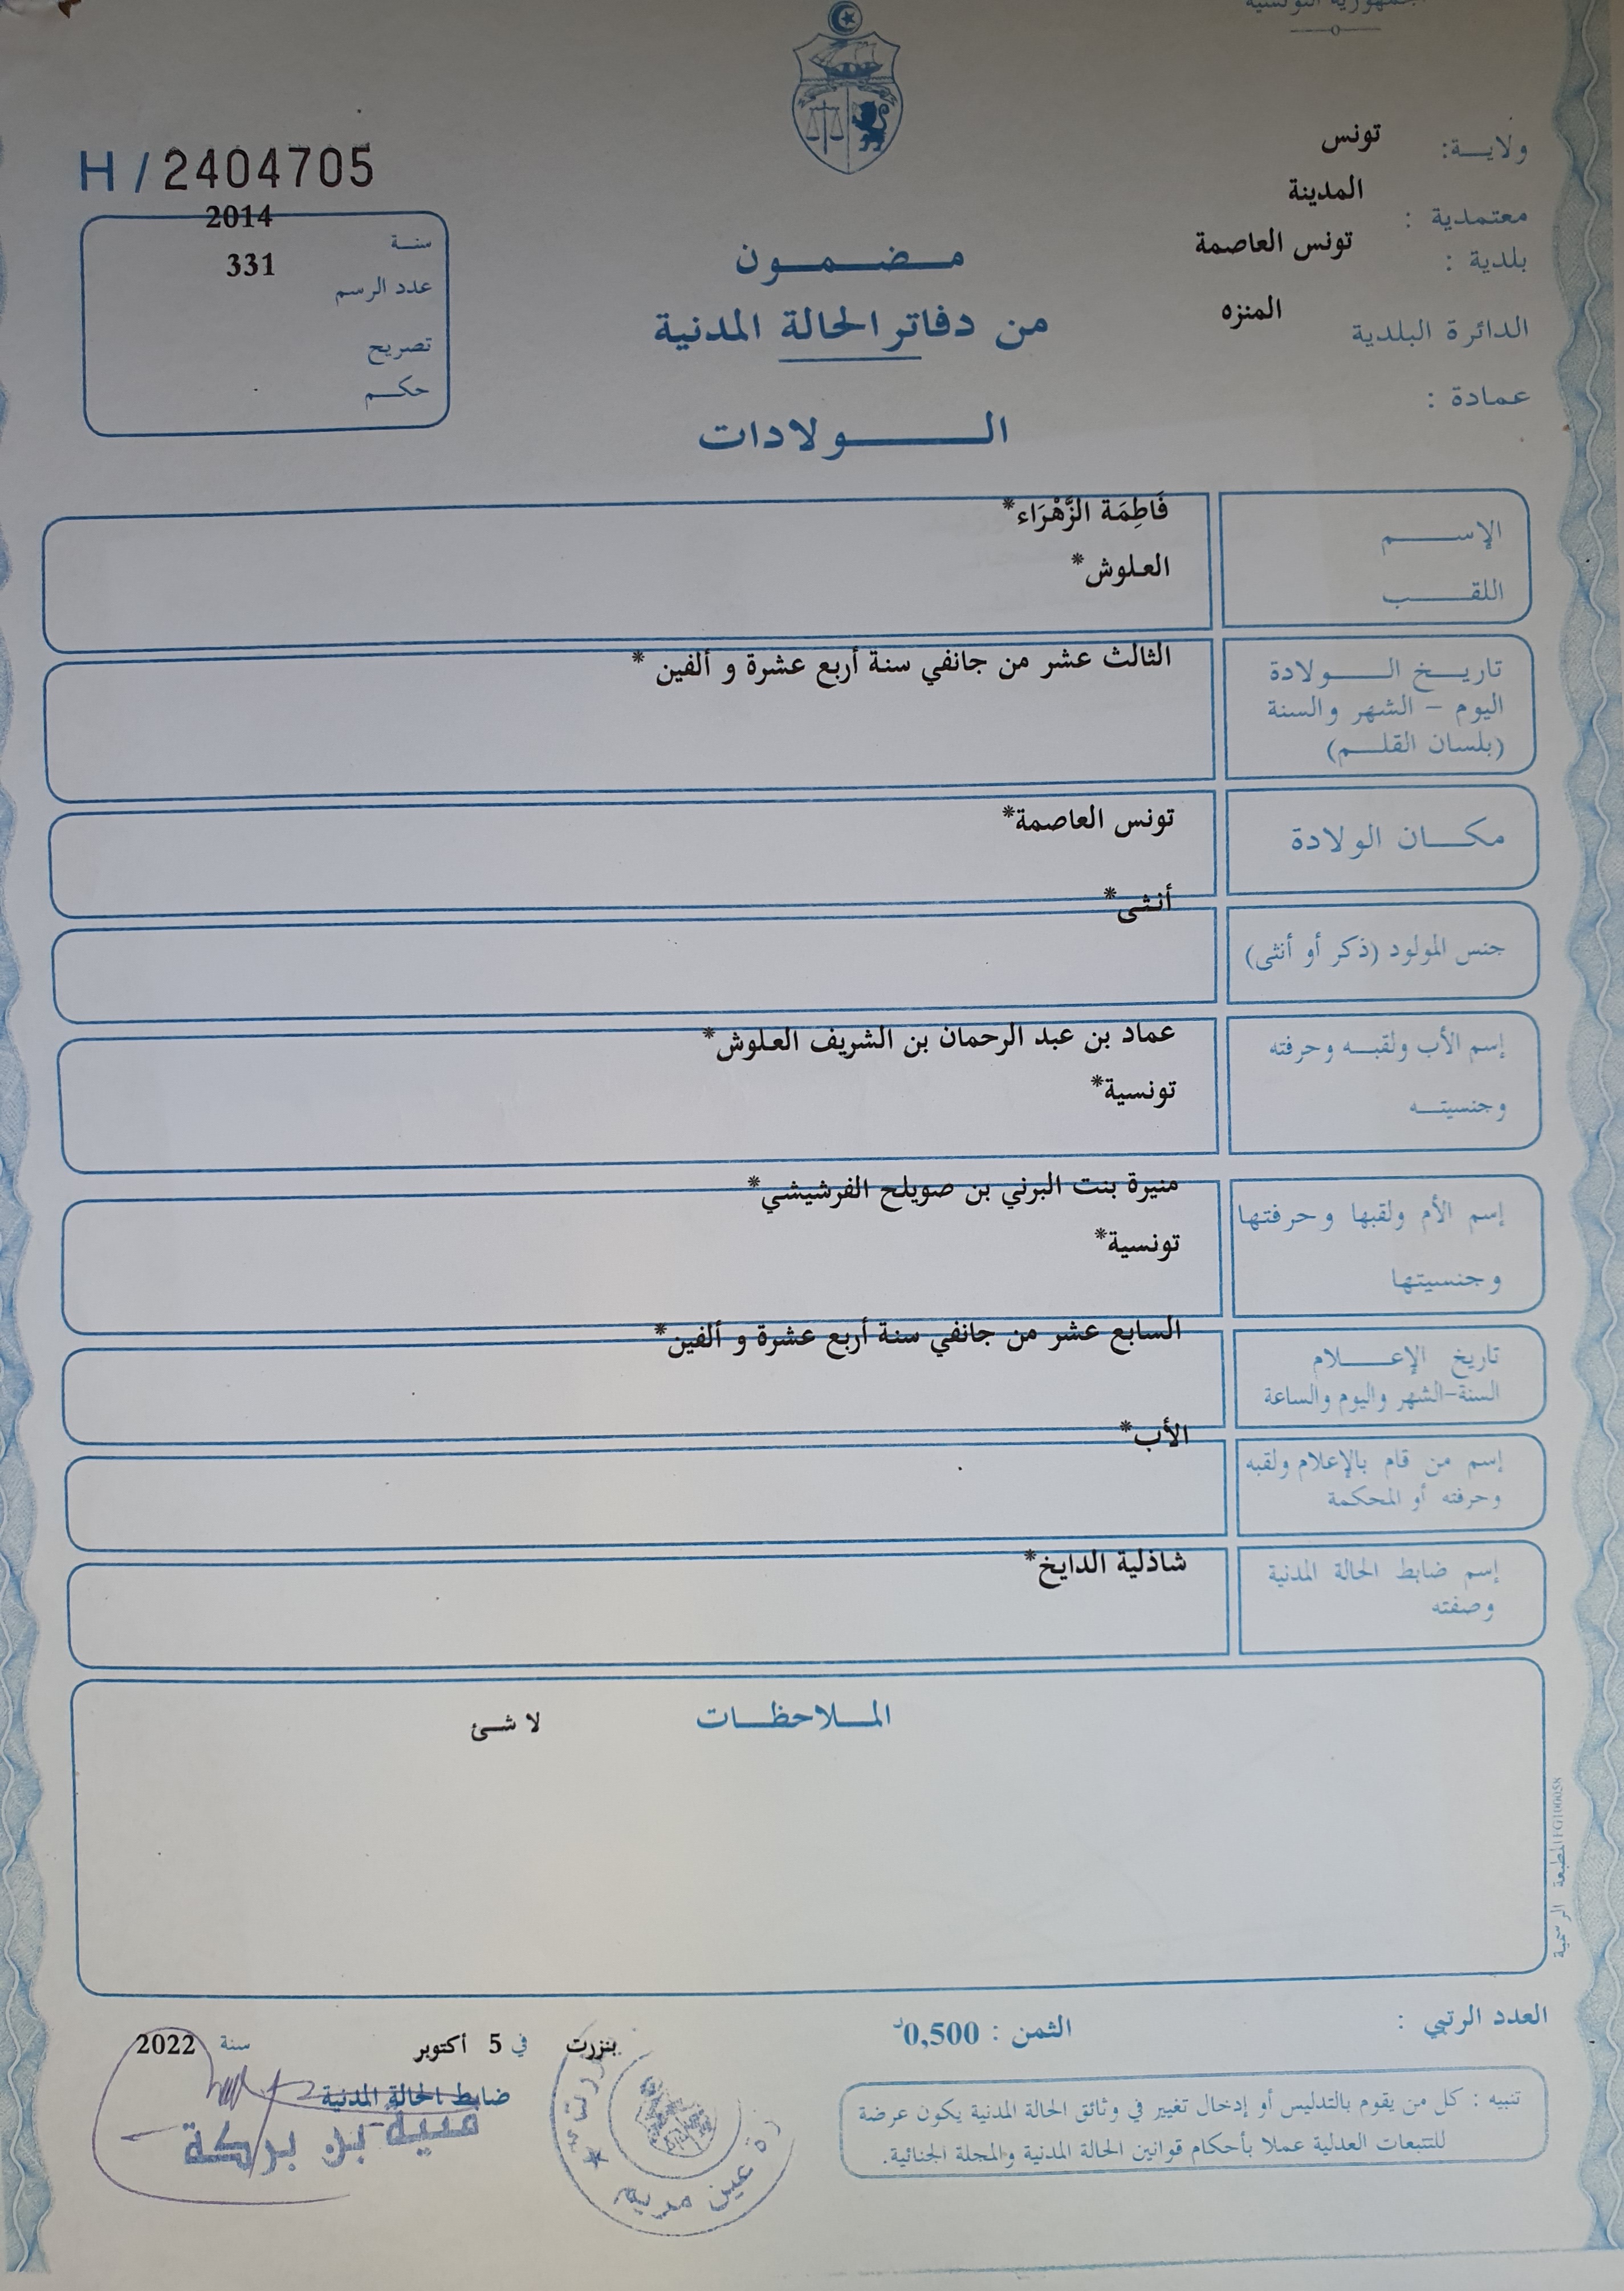 الجمهورية التونسية
ولايـة: تونس
معتمدية : المدينة
بلدية : تونس العاصمة
الدائرة البلدية المنزه
عمادة :
H / 2404705
سنـة 2014
عدد الرسم 331
تصريح
حكـم
مـضـمـون
من دفاتر الحالة المدنية
الـولادات
الإسـم فَاطِمَة الزَّهْرَاء*
اللقـب العلوش*
تاريـخ الـولادة الثالث عشر من جانفي سنة أربع عشرة و ألفين *
اليوم - الشهر والسنة
(بلسان القلـم)
مكـان الولادة تونس العاصمة*
جنس المولود (ذكر أو أنثى) أنثى*
إسم الأب ولقبـه وحرفته عماد بن عبد الرحمان بن الشريف العلوش*
وجنسيتـه تونسية*
إسم الأم ولقبها وحرفتها منيرة بنت البرني بن صويلح الفرشيشي*
وجنسيتها تونسية*
تاريخ الإعـلام السابع عشر من جانفي سنة أربع عشرة و ألفين*
السنة-الشهر واليوم والساعة
إسم من قام بالإعلام ولقبه الأب*
وحرفته أو المحكمة
إسم ضابط الحالة المدنية شاذلية الدايخ*
وصفته
المـلاحظـات لا شئ
المطبعة الرسمية
العدد الرتبي :
الثمن : 0,500د
بنزرت في 5 أكتوبر سنة 2022
ضابط الحالة المدنية
بن بركة
عين مريم
تنبيه : كل من يقوم بالتدليس أو إدخال تغيير في وثائق الحالة المدنية يكون عرضة
للتتبعات العدلية عملا بأحكام قوانين الحالة المدنية والمجلة الجنائية.